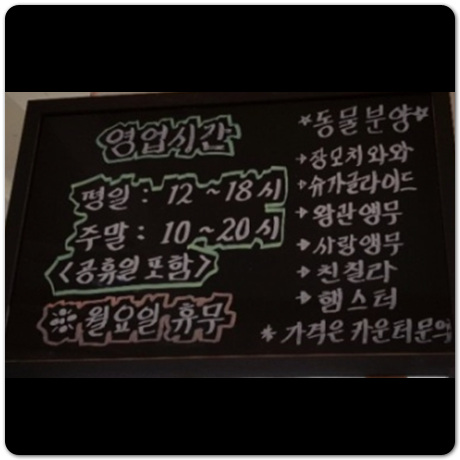 영업시간
평일 : 12 ~ 18시
주말 : 10 ~ 20시
<공휴일 포함>
※ 월요일 휴무
*동물분양*
→장모치와와
→슈가글라이드
→왕관앵무
→사랑앵무
→친칠라
→햄스터
* 가격은 카운터문의